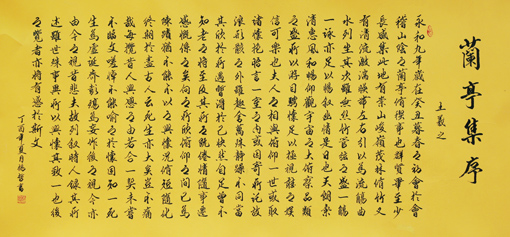 蘭亭集序
王羲之
永和九年歲在癸丑暮春之初會於會
稽山陰之蘭亭脩禊事也群賢畢至少
長咸集此地有崇山峻嶺茂林脩竹又
有清流激湍映帶左右引以為流觴曲
水列坐其次雖無絲竹管弦之盛一觴
一詠亦足以暢敘幽情是日也天朗氣
清惠風和暢仰觀宇宙之大俯察品類
之盛所以遊目騁懷足以極視聽之娛
信可樂也夫人之相與俯仰一世或取
諸懷抱悟言一室之內或因寄所託放
浪形骸之外雖趣舍萬殊靜躁不同當
其欣於所遇暫得於己快然自足曾不
知老之將至及其所之既倦情隨事遷
感慨係之矣向之所欣俯仰之間已為
陳跡猶不能不以之興懷況脩短隨化
終期於盡古人云死生亦大矣豈不痛
哉每攬昔人興感之由若合一契未嘗
不臨文嗟悼不能喻之於懷固知一死
生為虛誕齊彭殤為妄作後之視今亦
由今之視昔悲夫故列敘時人錄其所
述雖世殊事異所以興懷其致一也後
之覽者亦將有感於斯文
丁酉年夏月